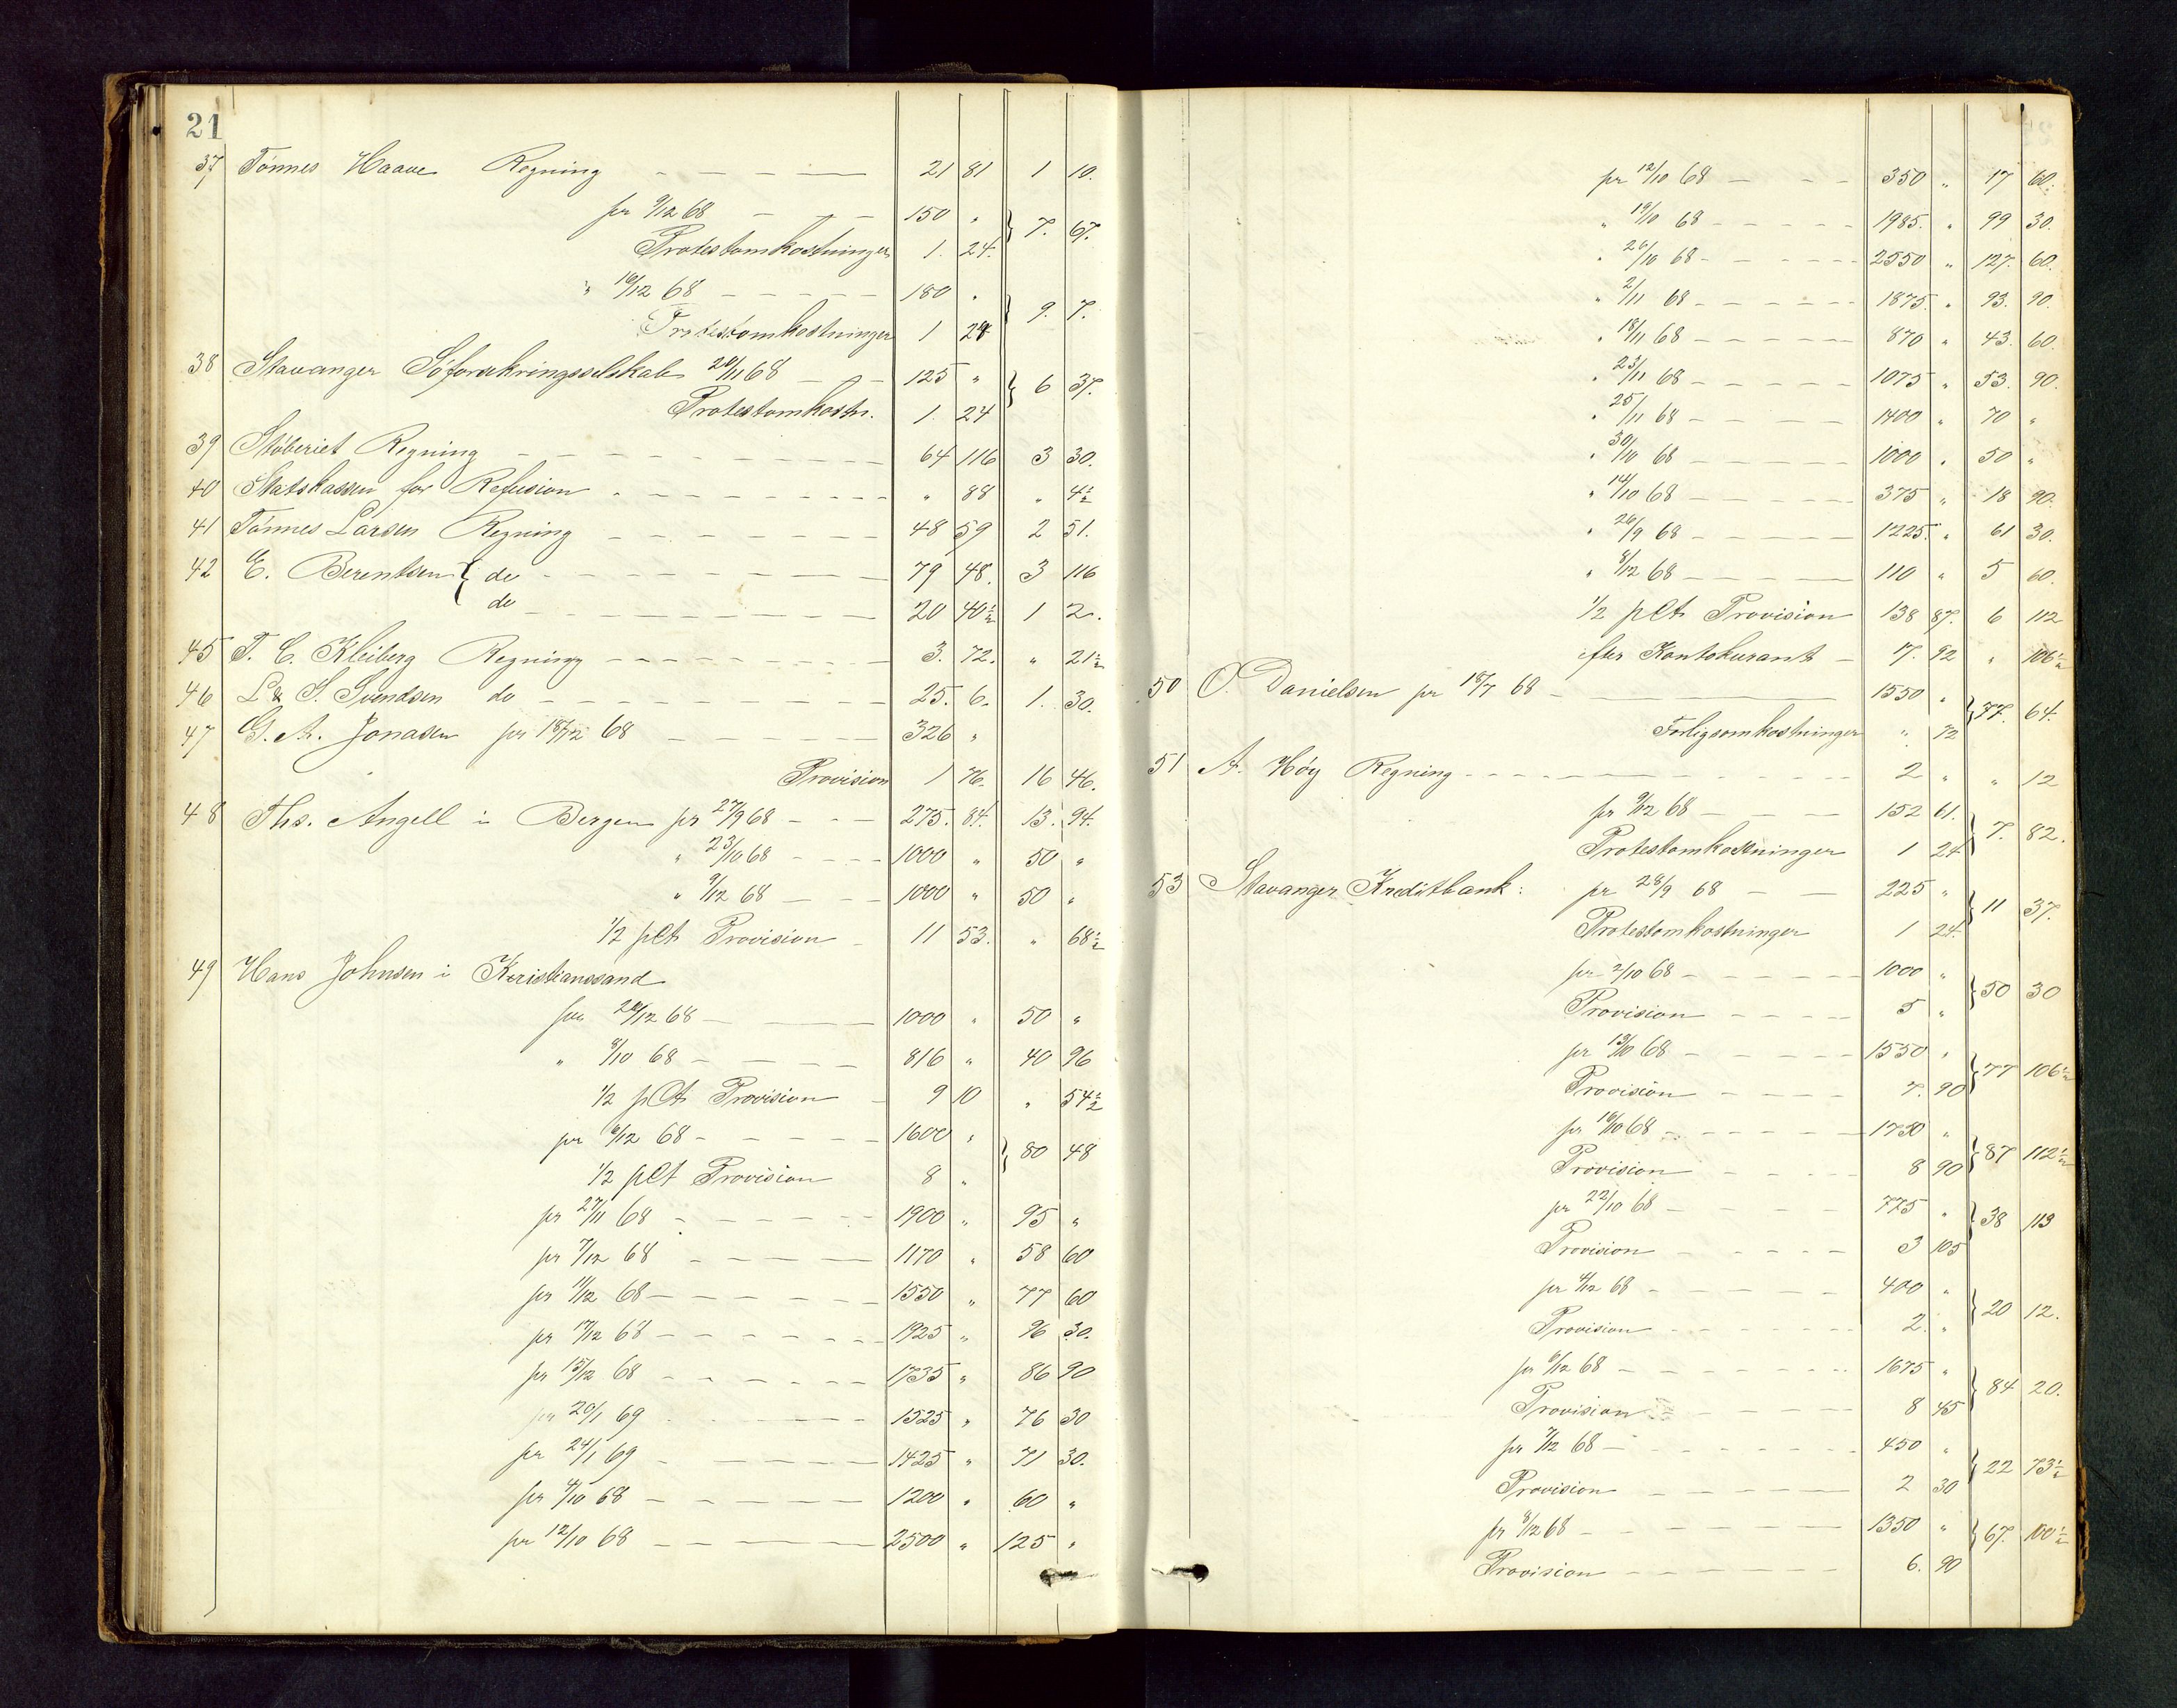 21
37 Tönnes Haave Regning — — — 21 81 1 10.
pr 9/12 68 — — — 150 „ } 7. 67.
Protestomkostninger 1. 24.
„ 16/12 68 — — — 180 „ } 9. 7.
Protestomkostninger 1 24
38 Stavanger Söforsikringsselskab 24/11 68 — — 125 „ } 6 37.
Protestomkostn. 1. 24
39 Stöberiet Regning — — — 64 116 3 30.
40 Statskassen for Refusion — — — „ 88 „ 4½
41 Tönnes Larsen Regning — — — 48 59 2 51.
42 E. Berentsen { do — — — 79 48. 3 116
do — — — 20 40½ 1 2.
45 T. C. Kleiberg Regning — — — 3. 72. „ 21½
46 L & S. Svendsen do — — — 25. 6. 1. 30.
47 G. A. Jonasen pr 18/12 68 — — — 326 „
Provision 1 76. 16 46.
48 Ths. Angell i Bergen pr 27/9 68 — — 275. 84. 13. 94.
„ 23/10 68 — — — 1000 „ 50 „
„ 9/12 68 — — — 1000 „ 50 „
1/2 pCt Provision — 11 53. „ 68½
49 Hans Johnsen i Kristianssand
pr 24/12 68 — — — 1000 „ 50 „
„ 8/10 68 — — — 816 „ 40 96
1/2 pCt Provision — 9 10 „ 54½
pr 6/12 68 — — — 1600 „ } 80 48
1/2 pCt Provision 8 „
pr 27/11 68 — — — 1900 „ 95 „
pr 7/12 68 — — — 1170 „ 58 60
pr 11/12 68 — — — 1550 „ 77 60
pr 17/12 68 — — — 1925 „ 96 30.
pr 15/12 68 — — — 1735 „ 86 90
pr 20/1 69 — — — 1525 „ 76 30
pr 24/1 69 — — — 1425 „ 71 30.
pr 4/10 68 — — — 1200 „ 60 „
pr 12/10 68 — — — 2500 „ 125 „
pr 12/10 68 — — — 350 „ 17 60.
„ 19/10 68 — — — 1985. „ 99 30.
„ 26/10 68 — — — 2550 „ 127. 60.
„ 2/11 68 — — — 1875. „ 93. 90.
„ 18/11 68 — — — 870 „ 43. 60.
„ 23/11 68 — — — 1075 „ 53. 90.
„ 25/11 68 — — — 1400 „ 70 „
„ 30/10 68 — — — 1000 „ 50 „
„ 14/10 68 — — — 375 „ 18 90.
„ 26/9 68 — — — 1225. „ 61 30.
„ 8/12 68 — — — 110 „ 5 60.
1/2 pCt Provision 138 87. 6 112
efter Kontokurant — 17. 92 „ 106½
50 O. Danielsen pr 18/7 68 — — — 1550 „ } 77. 64.
Forligsomkostninger „ 72
51 A. Höy Regning — — — 2 „ „ 12
pr 9/12 68 — — — 152 61. } 7. 82.
Protestomkostninger 1 24
53 Stavanger Kreditbank: pr 28/9 68 — — 225 „ } 11 37.
Protestomkostninger 1 24.
pr 2/10 68 — — — 1000 „ } 50 30
Provision — — — 5 „
pr 13/10 68 — — — 1550 „ } 77 106½
Provision — — — 7. 90
pr 16/10 68 — — — 1750 „ } 87 112½
Provision — — — 8 90
pr 22/10 68 — — — 775 „ } 38 113
Provision — — — 3 105
pr 4/12 68 — — — 400 „ } 20 12.
Provision — — — 2. „
pr 6/12 68 — — — 1675 „ } 84 20.
Provision — — — 8 45
pr 7/12 68 — — — 450 „ } 22 73½
Provision — — — 2 30
pr 8/12 68 — — — 1350 „ } 67. 100½
Provision — — — 6. 90